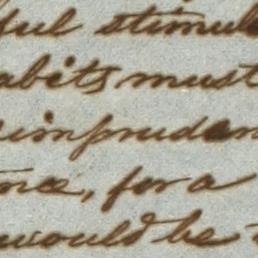 ful stimul
abits must
imprudent
nce, for a
would be